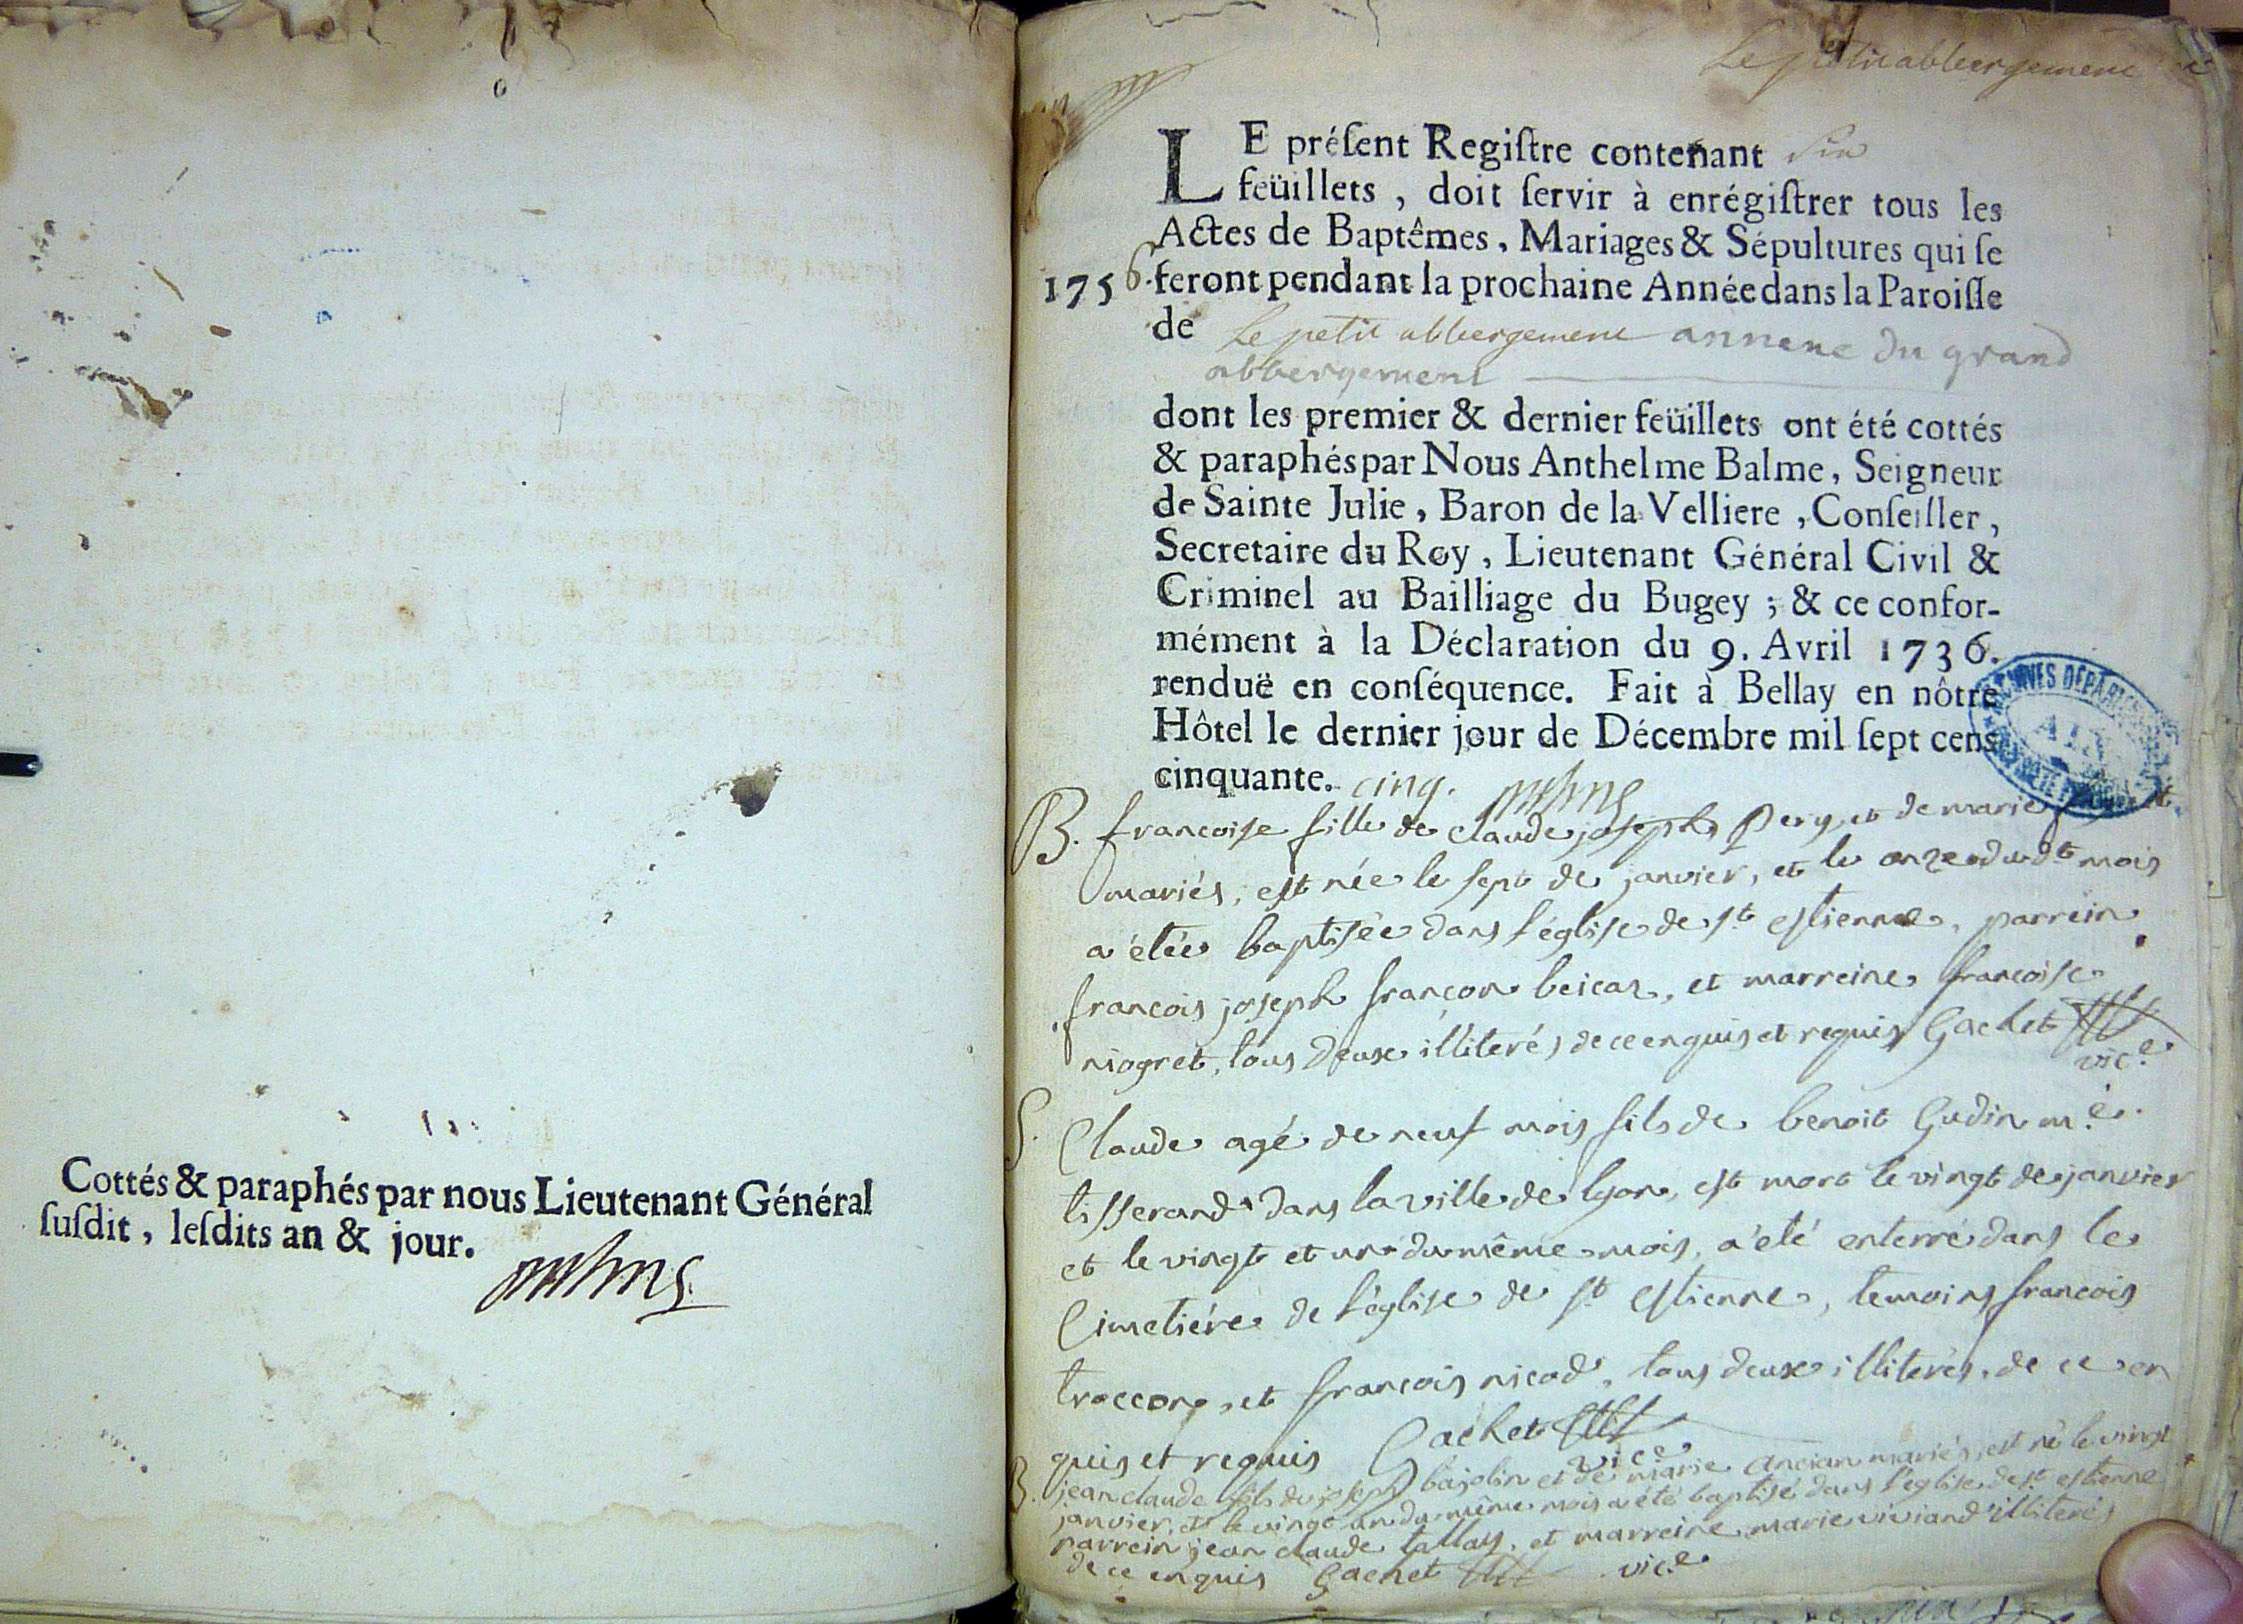 Cottés & paraphés par nous Lieutenant Général
ſuſdit, leſdits an & jour.
Le petit abbergement
LE préſent Regiſtre contenant six
feüillets, doit ſervir à enrégiſtrer tous les
Actes de Baptêmes, Mariages & Sépultures qui ſe
1756. feront pendant la prochaine Année dans la Paroiſſe
de Le petit abbergement annexe du grand
abbergement
dont les premier & dernier feüillets ont été cottés
& paraphés par Nous Anthelme Balme, Seigneur
de Sainte Julie, Baron de la Velliere, Conſeiller,
Secretaire du Roy, Lieutenant Général Civil &
Criminel au Bailliage du Bugey; & ce confor-
mément à la Déclaration du 9. Avril 1736.
renduë en conſéquence. Fait à Bellay en nôtre
Hôtel le dernier jour de Décembre mil ſept cens
cinquante. cinq.
ARCHIVES DÉPARTEMENTALES
AIN
B. francoise fille de claude joseph pery et de marie
mariés, est née le sept de janvier, et le onze dudt mois
a étée baptisée dans l'église de st estienne, parrein
francois joseph françon beicaz, et marreine francoise
niogret, tous deux illiterés de ce enquis et requis Gachet
vice
S. Claude agé de neuf mois fils de benoit Gudin me
tisserand dans la ville de lyon, est mort le vingt de janvier
et le vingt et un du même mois, a été enterré dans le
Cimetiére de l'église de st estienne, temoins francois
troccon, et francois nicod, tous deux illiterés, de ce en
quis et requis Gachet
vice
B. jean claude fils de joseph bajolin et de marie ancian mariés, est né le vingt
janvier, et le vingt un du même mois a été baptisé dans l'église de st estienne
parrein jean claude tallay, et marreine marie viviand illiterés
de ce enquis Gachet vice